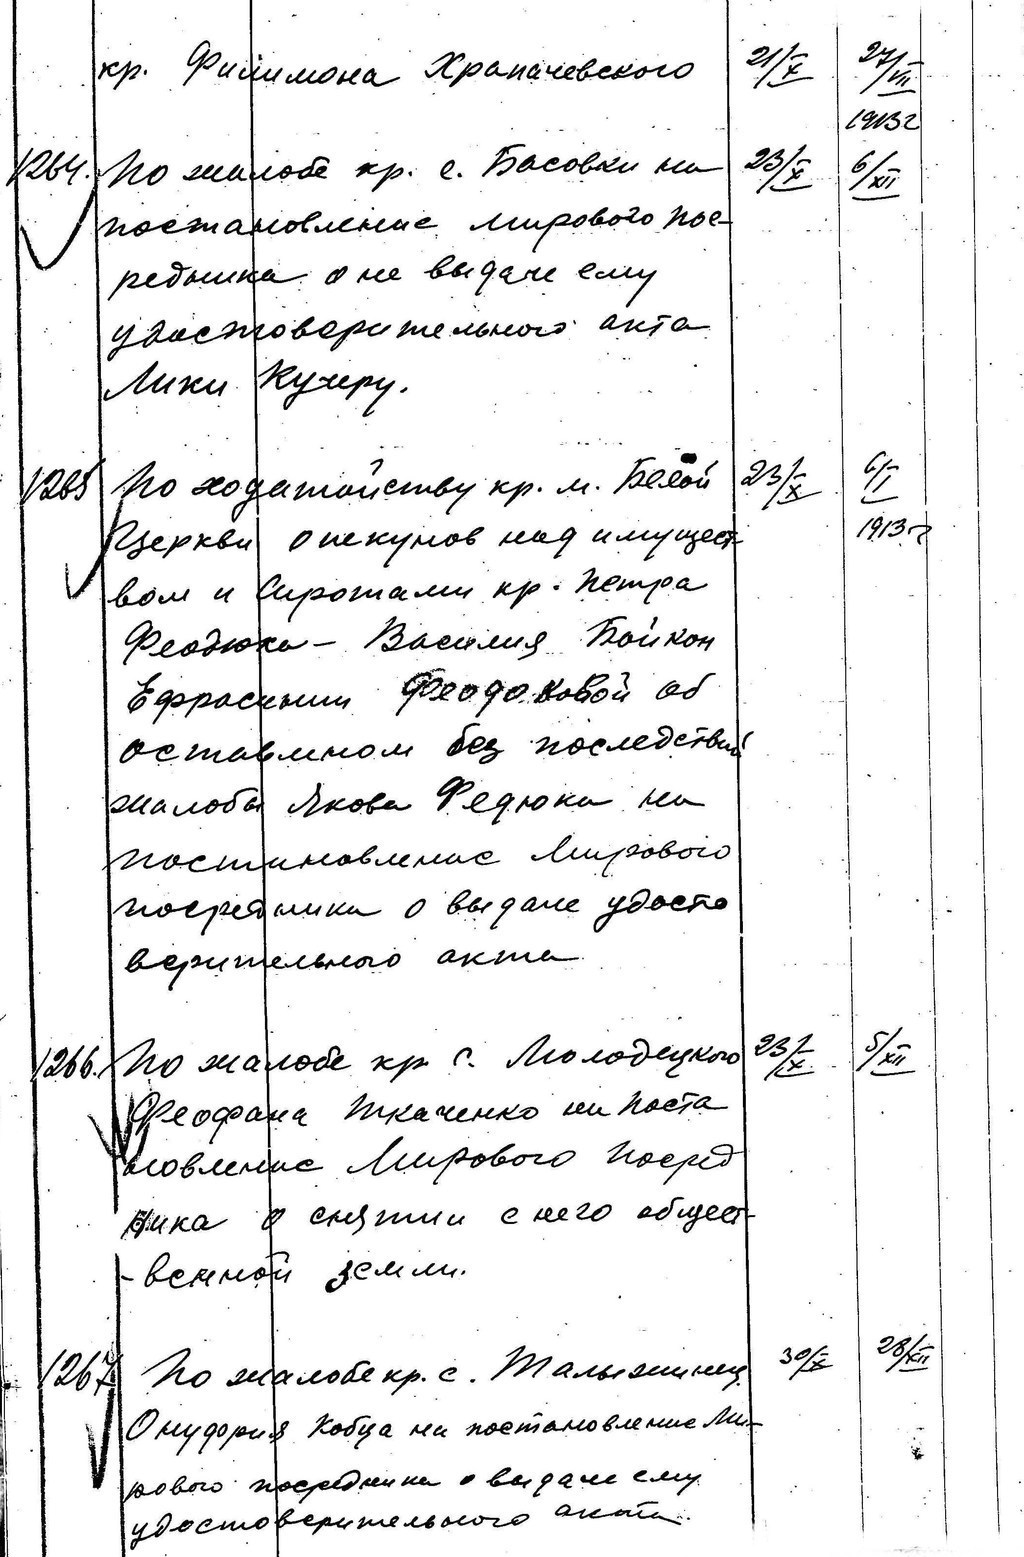 кр. Филимона Храпачевского 21/X 27/VII
1913 г
1264. По жалобе кр. с. Басовки на 23/X 6/XII
постановление мирового пос-
редника о не выдаче ему
удостоверительного акта
Луки Кучеру.
1265 По ходатайству кр. м. Белой 23/X 6/I
Церкви опекунов над имущест- 1913 г
вом и Сиротами кр. Петра
Феодюка - Василия Бойко и
Ефросинии Феодюковой об
оставленом без последствий
жалобы Якова Федюка на
постановление Мирового
посредника о выдаче удосто
верительного акта
1266. По жалобе кр с. Молодецкого 23/X 5/XII
Феофана Ткаченко на поста
новление Мирового Посред
ника о снятии с него общест-
-венной земли.
1267 По жалобе кр. с. 30/X 28/XII
Онуфрия Кобца на постановление Ми-
рового посредника о выдаче ему
удостоверительного акта.